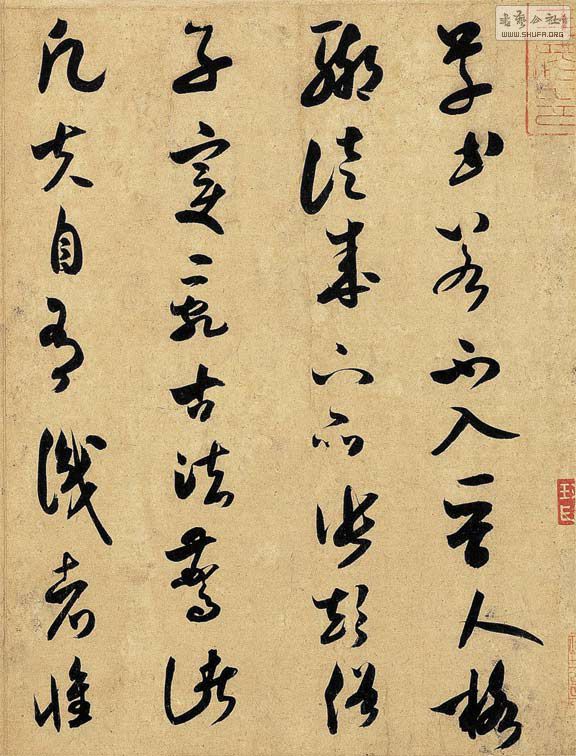 草書若不入晉人格
輒徒成下品張顛俗
子變亂古法驚諸
凡夫自有識者懷
书艺公社
WWW.SHUFA.ORG